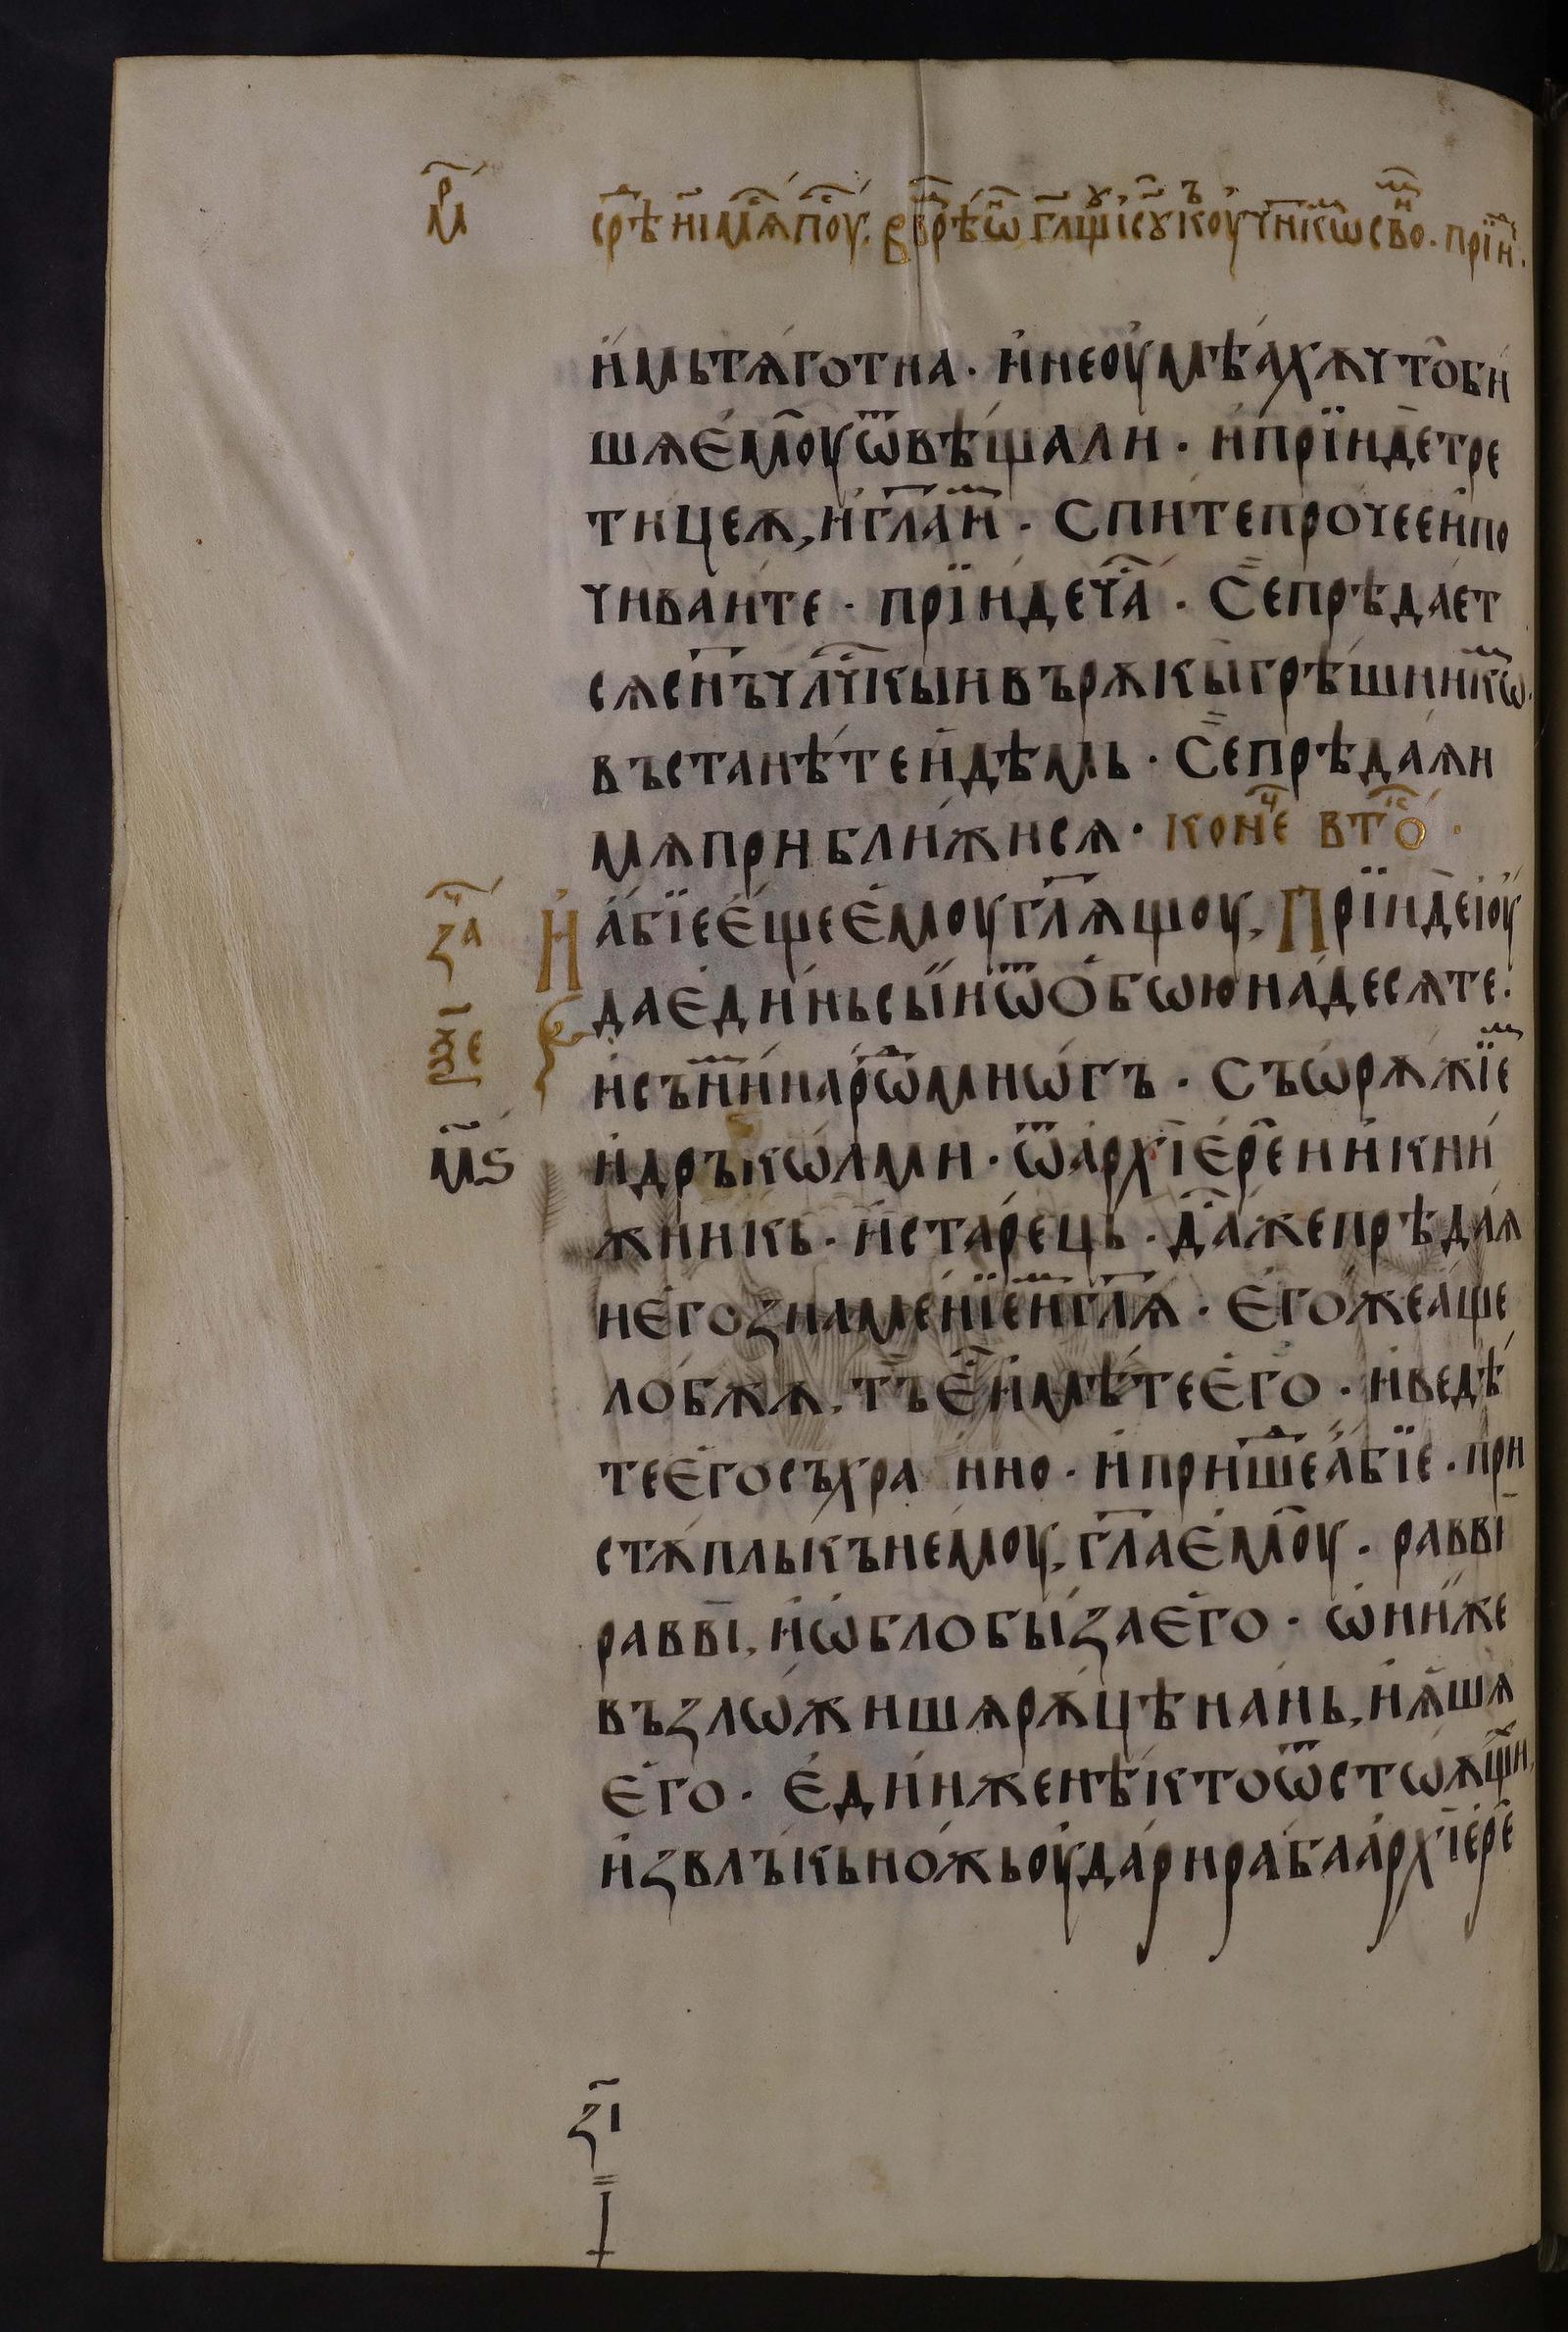 м҃р срѣ҃ нѝ мѧс̑ поу҃. въ врѣ҃ ѡ҃ гл҃ѧщꙋ ісꙋ къ оу҆ч҃нікѡ҃ сво҃. прїи҃.
и҆̀мь тѧ́готна · и҆ неоу҆мѣа́хѫ что̀ би́
шѧ є҆мо̀у ѿвѣ́щали · и҆ прїи́де тре
ти́цеѫ, и҆ гл҃а и҆̀м · Спи́те про́чее и҆ по
чива́ите · прїи́де ча́с · Се̏ прѣдае́т
сѧ сн҃ъ чл҃чкыи въ рѫкы̀ грѣ́шникѡм ·
въстанѣ́те и҆дѣ́мь · Се̏ прѣдаѧ́и
мѧ прибли́жисѧ · коне́ч вто́ ·
за҃ч И҆ а҆́бїе є҆щѐ є҆моу̀ гл҃ѧщоу, Прїи́де і҆оу́
ѯ҃е да є҆ди́нь сы́и ѿ о҆бѡю на́десѧте ·
и҆ съ ни́м наро́д мнѡ́гъ · съ ѡ҆рѫ́жїем
м҃ѕ и҆ дръкѡ́лми · ѿ а҆рхїе҆ре́и и҆ кни́
жникь · и҆ ста́рець · Да́с же прѣдаѧ́
и є҆го̀ зна́менїе и҆̀м гл҃ѧ · Є҆го́же а҆́ще
ло́бжѫ, тъ̀ є҆́с и҆мѣ́те є҆го̀ · и҆ ведѣ́
те є҆го̀ съхра́нно · и҆ прише́д а҆́бїе · при
стѫ́пль къ немоу̀, гл҃а є҆мо̀у · равві
равві̀, и҆ ѡ҆блобы́за є҆го̀ · ѡ҆ни́же
възлѡ́жишѧ рѫ́цѣ на́нь, и҆ ѧ҆́шѧ
є҆го̀ · Є҆ди́н же нѣ́кто ѿ стѡѫ́щих,
и҆звлъ́кь но́жь оу҆да́ри раба̀ а҆рхїе҆ре́
з҃і